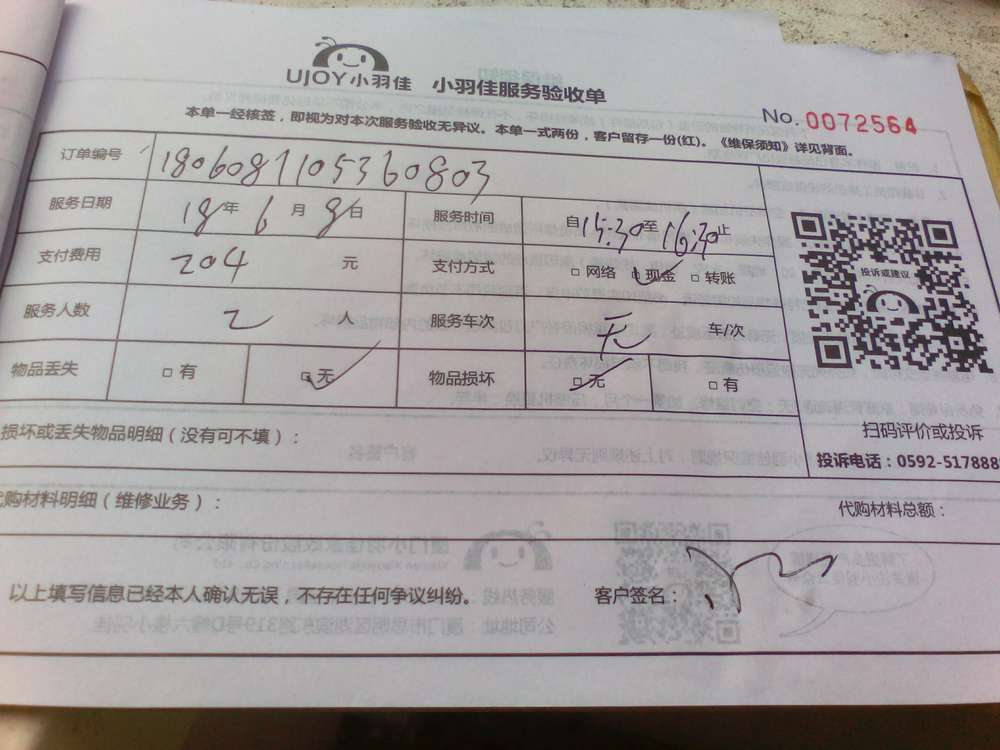 UJOY小羽佳 小羽佳服务验收单
No. 0072564
本单一经核签，即视为对本次服务验收无异议。本单一式两份，客户留存一份(红)。《维保须知》详见背面。
订单编号 1806081105360803
服务日期 18年 6月 8日 服务时间 自15:30至16:30止
支付费用 204 元 支付方式 □网络 □现金 □转账
投诉或建议
服务人数 2 人 服务车次 无 车/次
物品丢失 □有 □无 物品损坏 □无 □有
损坏或丢失物品明细（没有可不填）：
扫码评价或投诉
投诉电话：0592-5178888
购材料明细（维修业务）： 代购材料总额：
以上填写信息已经本人确认无误，不存在任何争议纠纷。 客户签名：